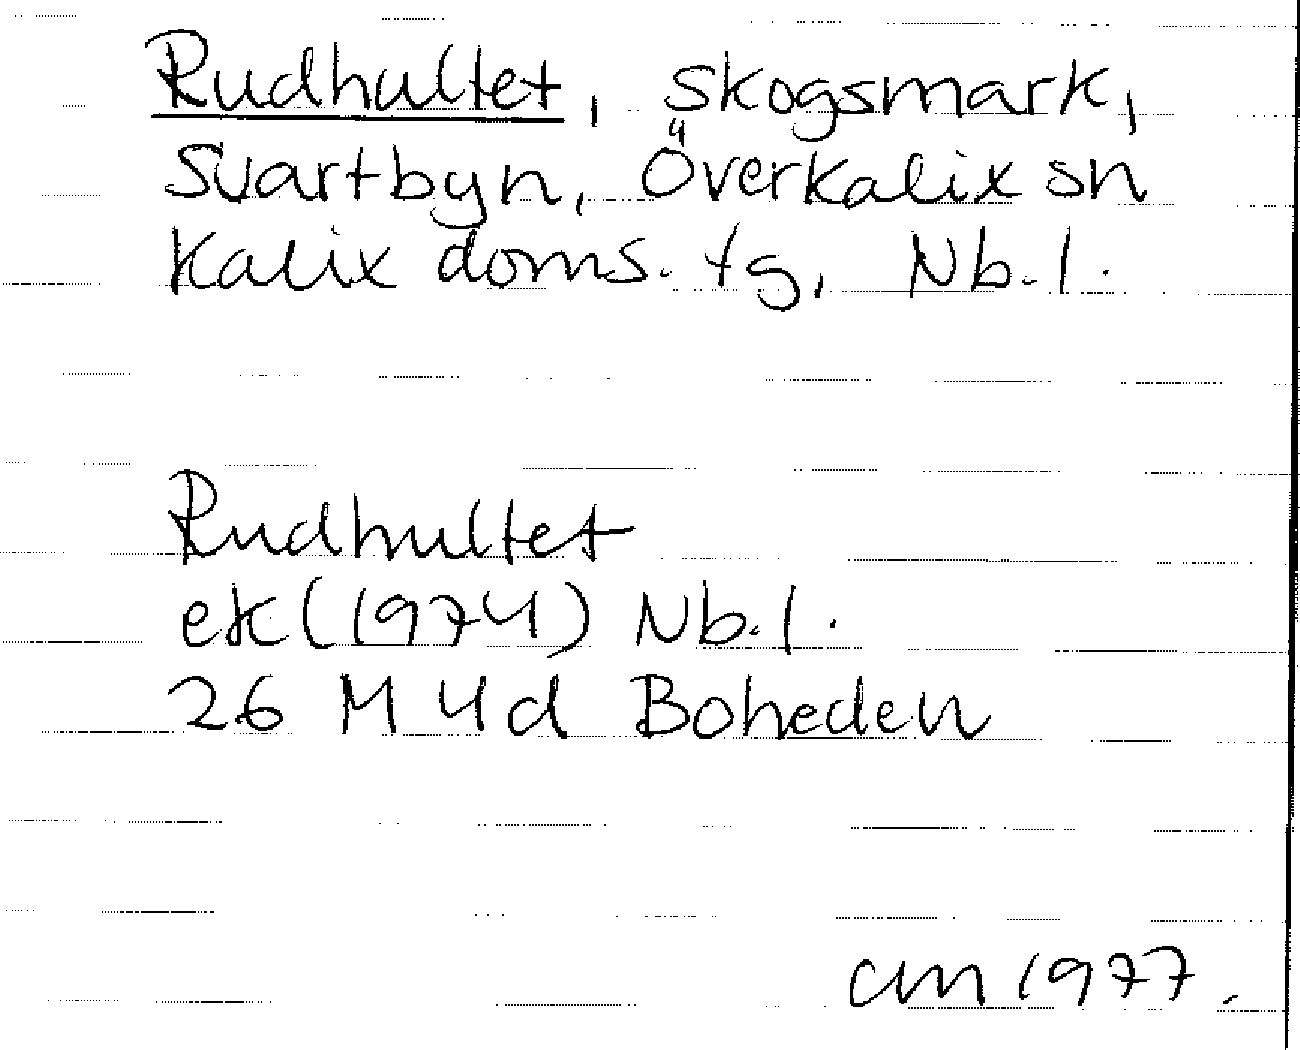 Rudhultet, skogsmark,
Svartbyn, Överkalix sn
Kalix doms. tg, Nb. l.
Rudhultet
ek (1974) Nb. l.
26 M 4d Boheden
CM 1977.